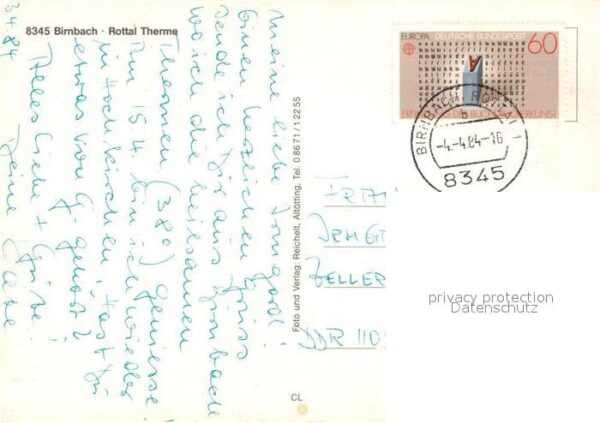 8345 Birnbach · Rottal Therme
3.4.84
Meine liebe Irmgard!
Einen herzlichen Gruss
sende ich Dir aus Birnbach
wo ich die heilsamen
Thermen (38°) geniesse.
Am 15.4. bin ich wieder
in Hochkirchen. Hast Du
etwas von G. gehört?
Alles Liebe + Gute!
Deine
Foto und Verlag: Reichelt, Altötting, Tel. 08671/12255
CL
EUROPA DEUTSCHE BUNDESPOST 60
BIRNBACH, ROTTAL 1
b
-4.-4.84-16
8345
FRAU
IRMG
ZELLER
DDR 110
privacy protection
Datenschutz